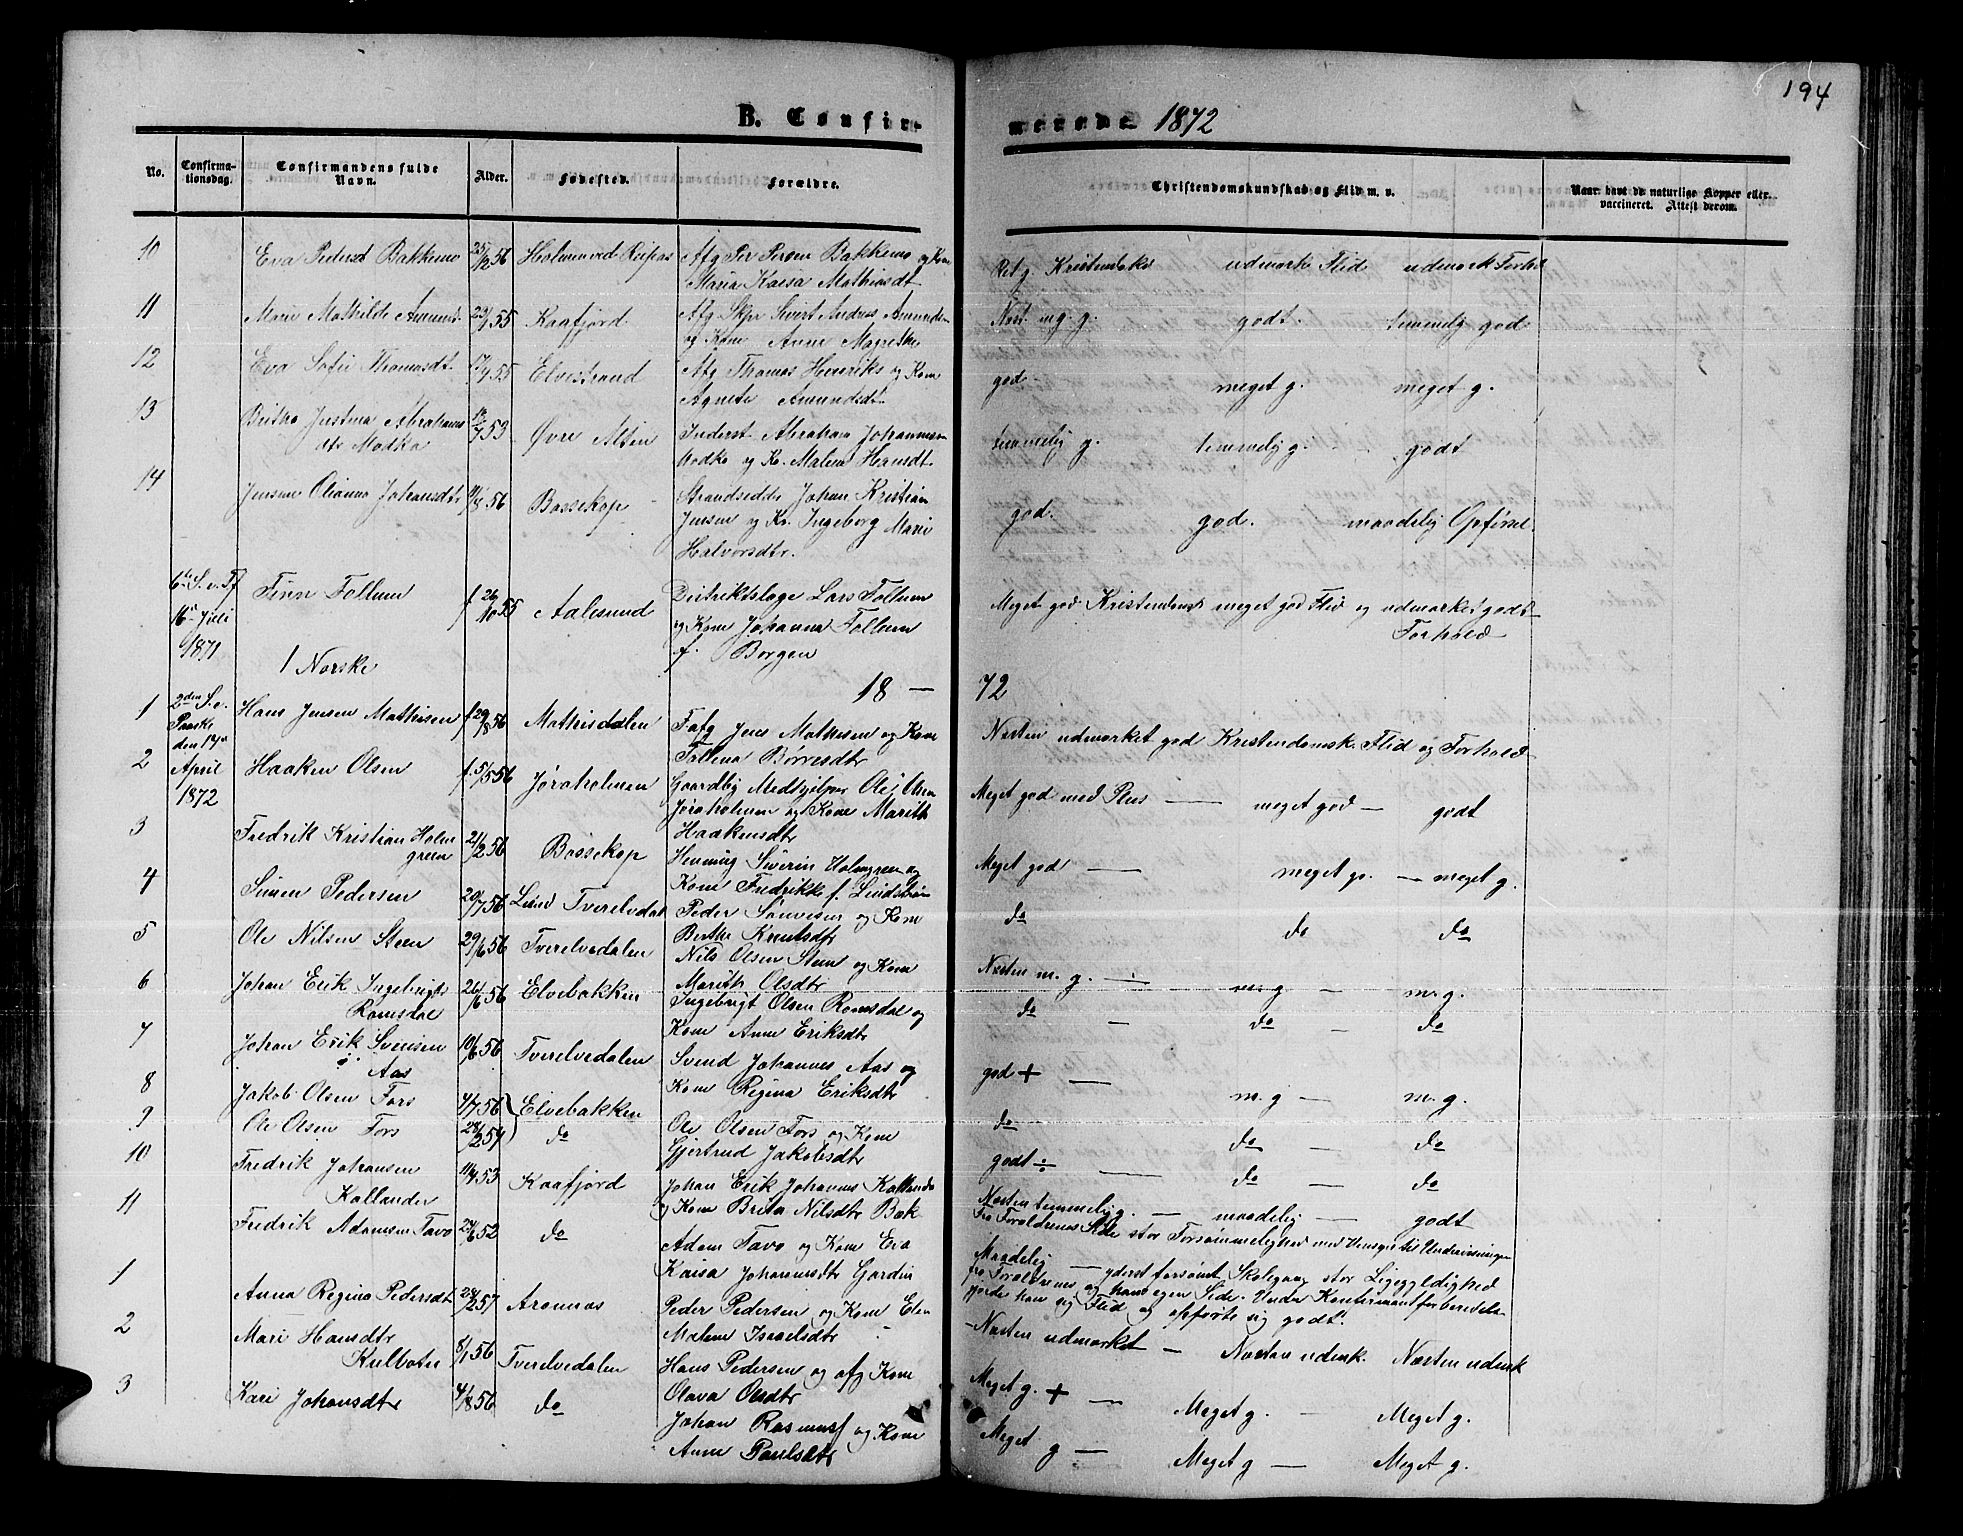 194
B. Confirmerede 1872
No. Confirmationsdag. Confirmandens fulde Navn. Alder. Fødested. Forældre. Christendomskundskab og Flid m. v. Naar havt de naturlige Kopper eller vaccineret. Attest derom.
10 Eva Pedersdt Bakkemo 25/2 56 Holmen ved Reipas Afg Per Person Bakkemo og Kone Maria Kaisa Mathiasdt Ret g. Kristendsk udmærk Flid udmærk Forhd
11 Mari Mathilde Amunds. 23/1 55 Kaafjord Afg Skpr Sivert Andreas Amundsen og Kone Anne Magrethe Næst. mg. g. godt. temmelig god
12 Eva Sofie Thomasdt. 17/4 55 Elvestrand Afg Thomas Henriks og Kone Agnete Amundsdt. god meget g. meget g.
13 Britha Justina Abrahamsdtr Modka 12/7 53 Øvre Alten Inderst Abraham Johannesen Modka og Ko. Malena Hansdt. temmelig g. temmelig g. godt
14 Jensine Olianna Johansdtr 11/8 56 Bossekop Strandsidder Johan Kristian Jensen og Ko. Ingeborg Marie Halvorsdtr. god. god. maadelig Opførsel.
6te S. e. Tr. 16de Juli 1871 Finn Follum f. 26/10 55 Aalesund Distriktslæge Lars Follum og Kone Johanna Follum f. Borgen Meget god Kristendomsk meget god Flid og udmærket godt Forhold
1 Norske
18 — 72
1 2den S. e. Paaske den 14de April 1872 Hans Jensen Mathisen f 29/8 56 Mathisdalen Fafg Jens Mathisen og Kone Follena Børresdtr Næsten udmærket god Kristendomsk. Flid og Forhold
2 Haaken Olsen f. 5/5 56 Jøraholmen Gaardbg Medhjelper Ole Olsen Jøraholmen og Kone Marith Haakensdtr Meget god med Plus — meget god — godt
3 Fredrik Kristian Holmgreen 21/2 56 Bossekop Henning Siverin Holmgreen og Kone Fredrikke f. Lindstrøm Meget god — meget go. — meget g.
4 Simen Pedersen 20/7 56 Tverelvdal Peder Simensen og Kone Berthe Knutsdtr do do do
5 Ole Nilsen Steen 29/6 56 Tverelvedalen Nils Olsen Steen og Kone Marith Olsdtr Næsten m. g. — m. g — m. g.
6 Johan Erik Ingebrigts Romsdal 26/6 56 Elvebakken Ingebrigt Olsen Romsdal og Kone Anne Eriksdtr do — do — do
7 Johan Erik Svensen Aas 10/6 56 Tverelvedalen Svend Johannes Aas og Kone Regina Eriksdtr god + — m. g — m. g.
8 Jakob Olsen Fors 4/7 56 Elvebakken Ole Olsen Fors og Kone Gjertrud Jakobsdtr do do — do
9 Ole Olsen Fors 28/2 54 do godt ÷ — do — do
10 Fredrik Johansen Kollander 11/4 53 Kaafjord Johan Erik Johannes Kollander og Kone Brita Nilsdtr Bæk Næsten temmelig g. — maadelig — godt
Fra Forældrenes Side stor Forsømmelighed med Hensyn til Undervisningen
11 Fredrik Adamsen Tavo 24/6 52 do Adam Tavo og Kone Eva Kaisa Johannesdtr Gardin Maadelig — yderst forsømt Skolegang stor Ligegyldighed fra Forældrenes og hans egen Side. Under Konfirmantforberedelsen gjorde han sig Flid og opførte sig godt.
1 Anna Regina Pedersdt 24/2 57 Aronnæs Peder Pedersen og Kone Elen Malene Israelsdtr Næsten udmærket — Næsten udmk. Næsten udmk
2 Mari Hansdtr Kulbotn 8/1 56 Tverelvedalen Hans Pedersen og afg Kone Olava Olsdtr Meget g. + — Meget g. — Meget g.
3 Kari Johansdtr 4/8 56 do Johan Rasmusf og Kone Anne Poulsdtr Meget g — Meget g — Meget g.